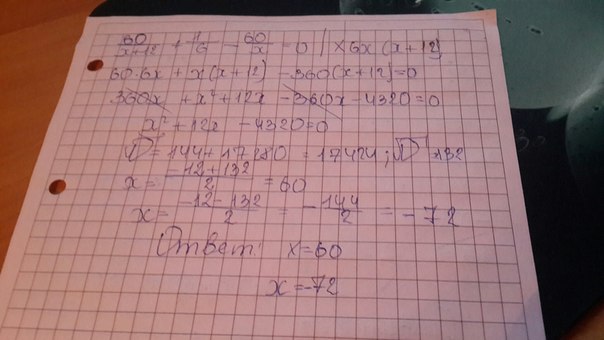 60/(x+12) + 1/6 - 60/x = 0 | × 6x (x+12)
60·6x + x(x+12) - 360(x+12)=0
360x + x² + 12x - 360x - 4320=0
x² + 12x - 4320=0
D = 144 + 17280 = 17424; √D = 132
x = (-12+132)/2 = 60
x = (-12-132)/2 = -144/2 = -72
Ответ: x=60
x=-72